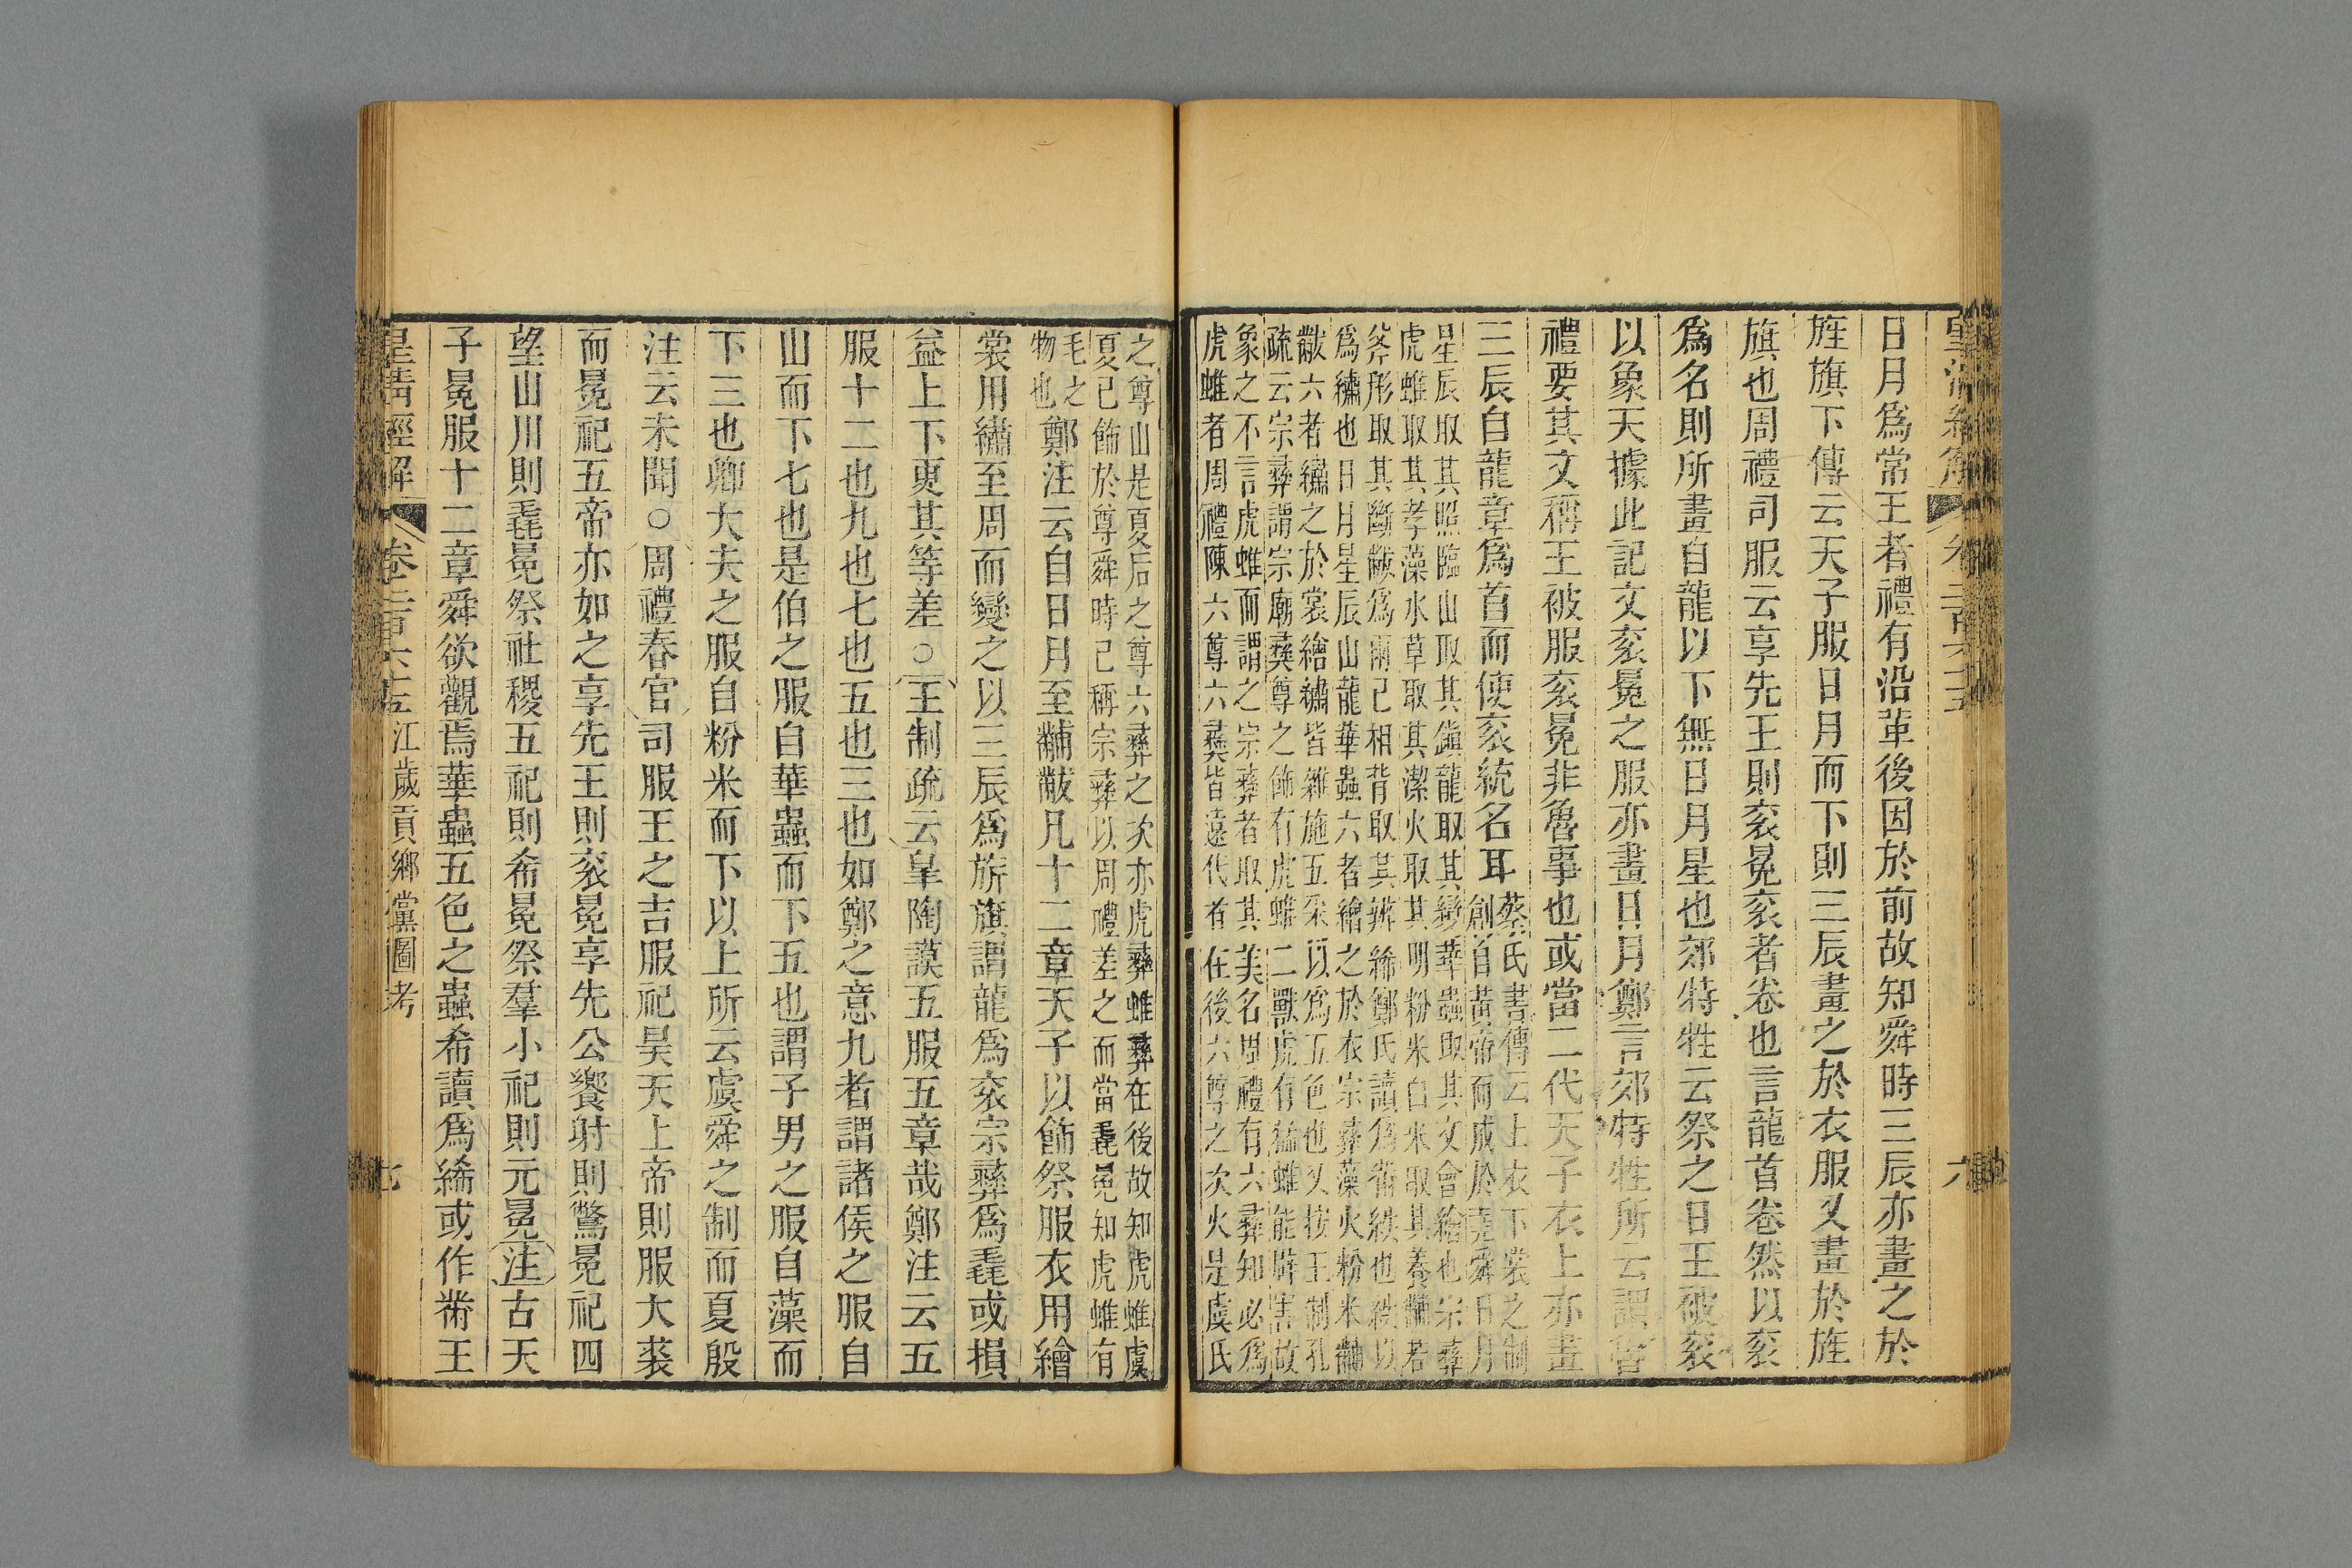 皇清經解 卷二百六十五 六
日月爲常王者禮有沿革後因於前故知舜時三辰亦畫之於
旌旗下傳云天子服日月而下則三辰畫之於衣服又畫於旌
旗也周禮司服云享先王則衮冕衮者卷也言龍首卷然以衮
爲名則所畫自龍以下無日月星也郊特牲云祭之日王被衮
以象天據此記文衮冕之服亦畫日月鄭言郊特牲所云謂魯
禮要其文稱王被服衮冕非魯事也或當二代天子衣上亦畫
三辰自龍章爲首而使衮統名耳
蔡氏書傳云上衣下裳之制
創首黃帝而成於堯舜日月
星辰取其照臨山取其鎮龍取其變華蟲取其文會繪也宗彝
虎蜼取其孝藻水草取其潔火取其明粉米白米取其養黼若
斧形取其斷黻爲兩己相背取其辨絺鄭氏讀爲黹紩也紩以
爲繡也日月星辰山龍華蟲六者繪之於衣宗彝藻火粉米黼
黻六者繡之於裳繪繡皆雜施五采以爲五色也又按王制孔
疏云宗彝謂宗廟彝尊之飾有虎蜼二獸虎有猛蜼能辟害故
象之不言虎蜼而謂之宗彝者取其美名周禮有六彝知必爲
虎蜼者周禮陳六尊六彝皆遠代者在後六尊之次火是虞氏
之尊山是夏后之尊六彝之次亦虎彝蜼彝在後故知虎蜼虞
夏已飾於尊舜時已稱宗彝以周禮差之而當毳冕知虎蜼有
毛之
物也
鄭注云自日月至黼黻凡十二章天子以飾祭服衣用繪
裳用繡至周而變之以三辰爲旂旗謂龍爲衮宗彝爲毳或損
益上下更其等差○王制疏云皐陶謨五服五章哉鄭注云五
服十二也九也七也五也三也如鄭之意九者謂諸侯之服自
山而下七也是伯之服自華蟲而下五也謂子男之服自藻而
下三也卿大夫之服自粉米而下以上所云虞舜之制而夏殷
注云未聞○周禮春官司服王之吉服祀昊天上帝則服大裘
而冕祀五帝亦如之享先王則衮冕享先公饗射則鷩冕祀四
望山川則毳冕祭社稷五祀則希冕祭羣小祀則元冕注古天
子冕服十二章舜欲觀焉華蟲五色之蟲希讀爲絺或作黹王
皇清經解 卷二百六十五 江歲貢鄉黨圖考 七